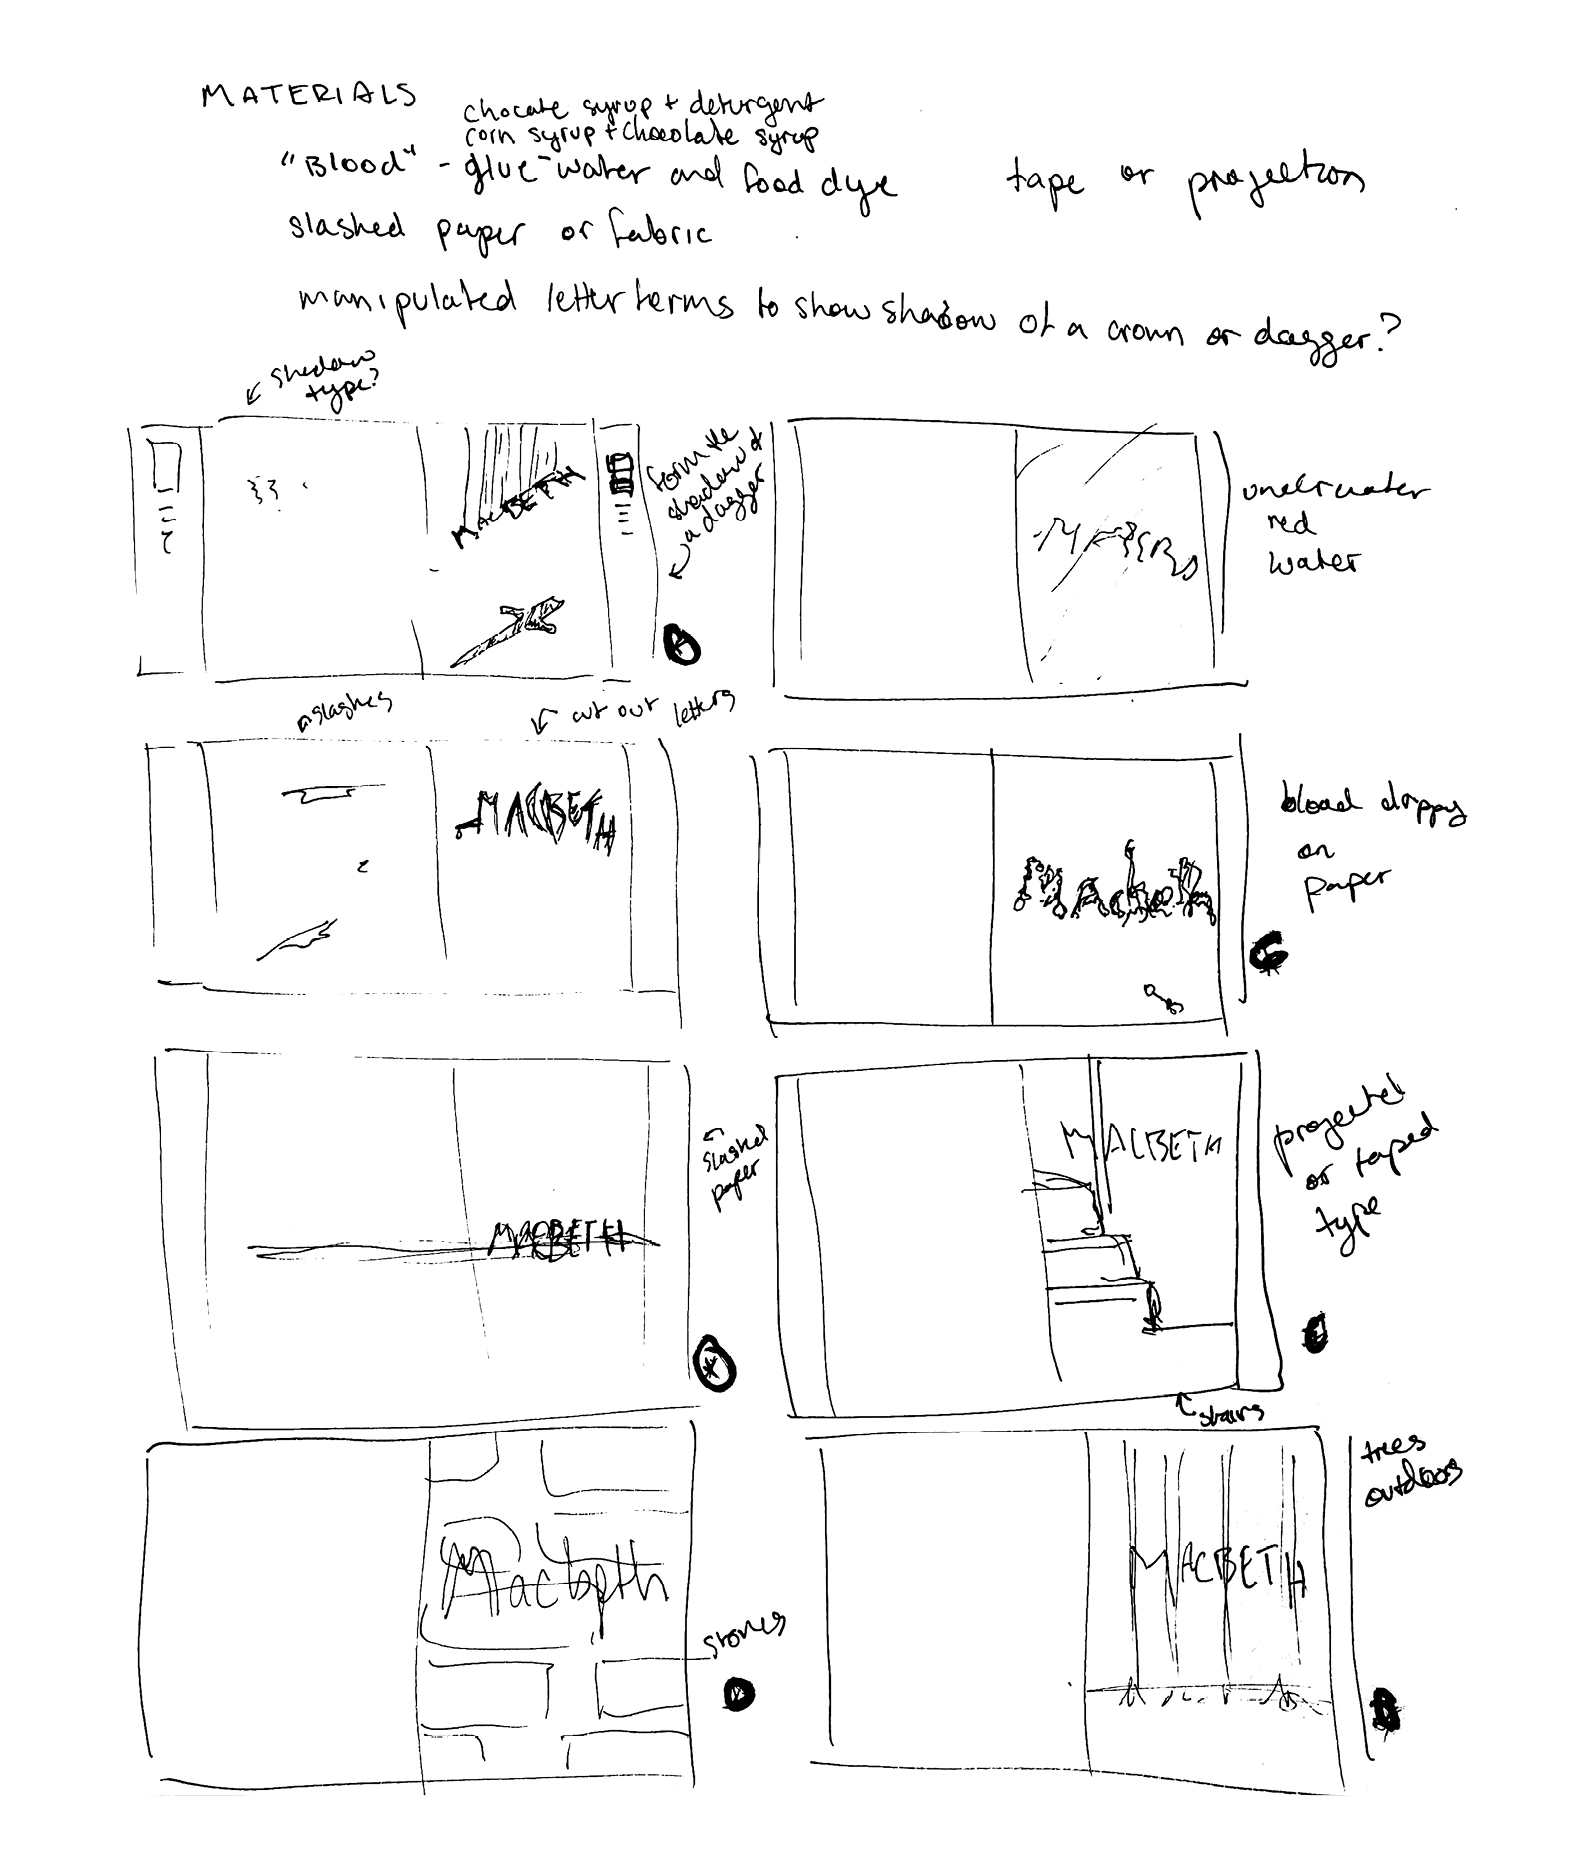 MATERIALS
chocate syrup + detergent
corn syrup + chocolate syrup
"Blood" - glue - water and food dye
tape or projection
slashed paper or fabric
manipulated letter terms to show shadow of a crown or dagger?
shadow
type?
MACBETH
form the
shadow of
a dagger
underwater
red
water
slashes
cut out letters
MACBETH
blood drippy
on
paper
Macbeth
MACBETH
slashed
paper
MACBETH
projected
or taped
type
stairs
Macbeth
stones
trees
outdoors
MACBETH